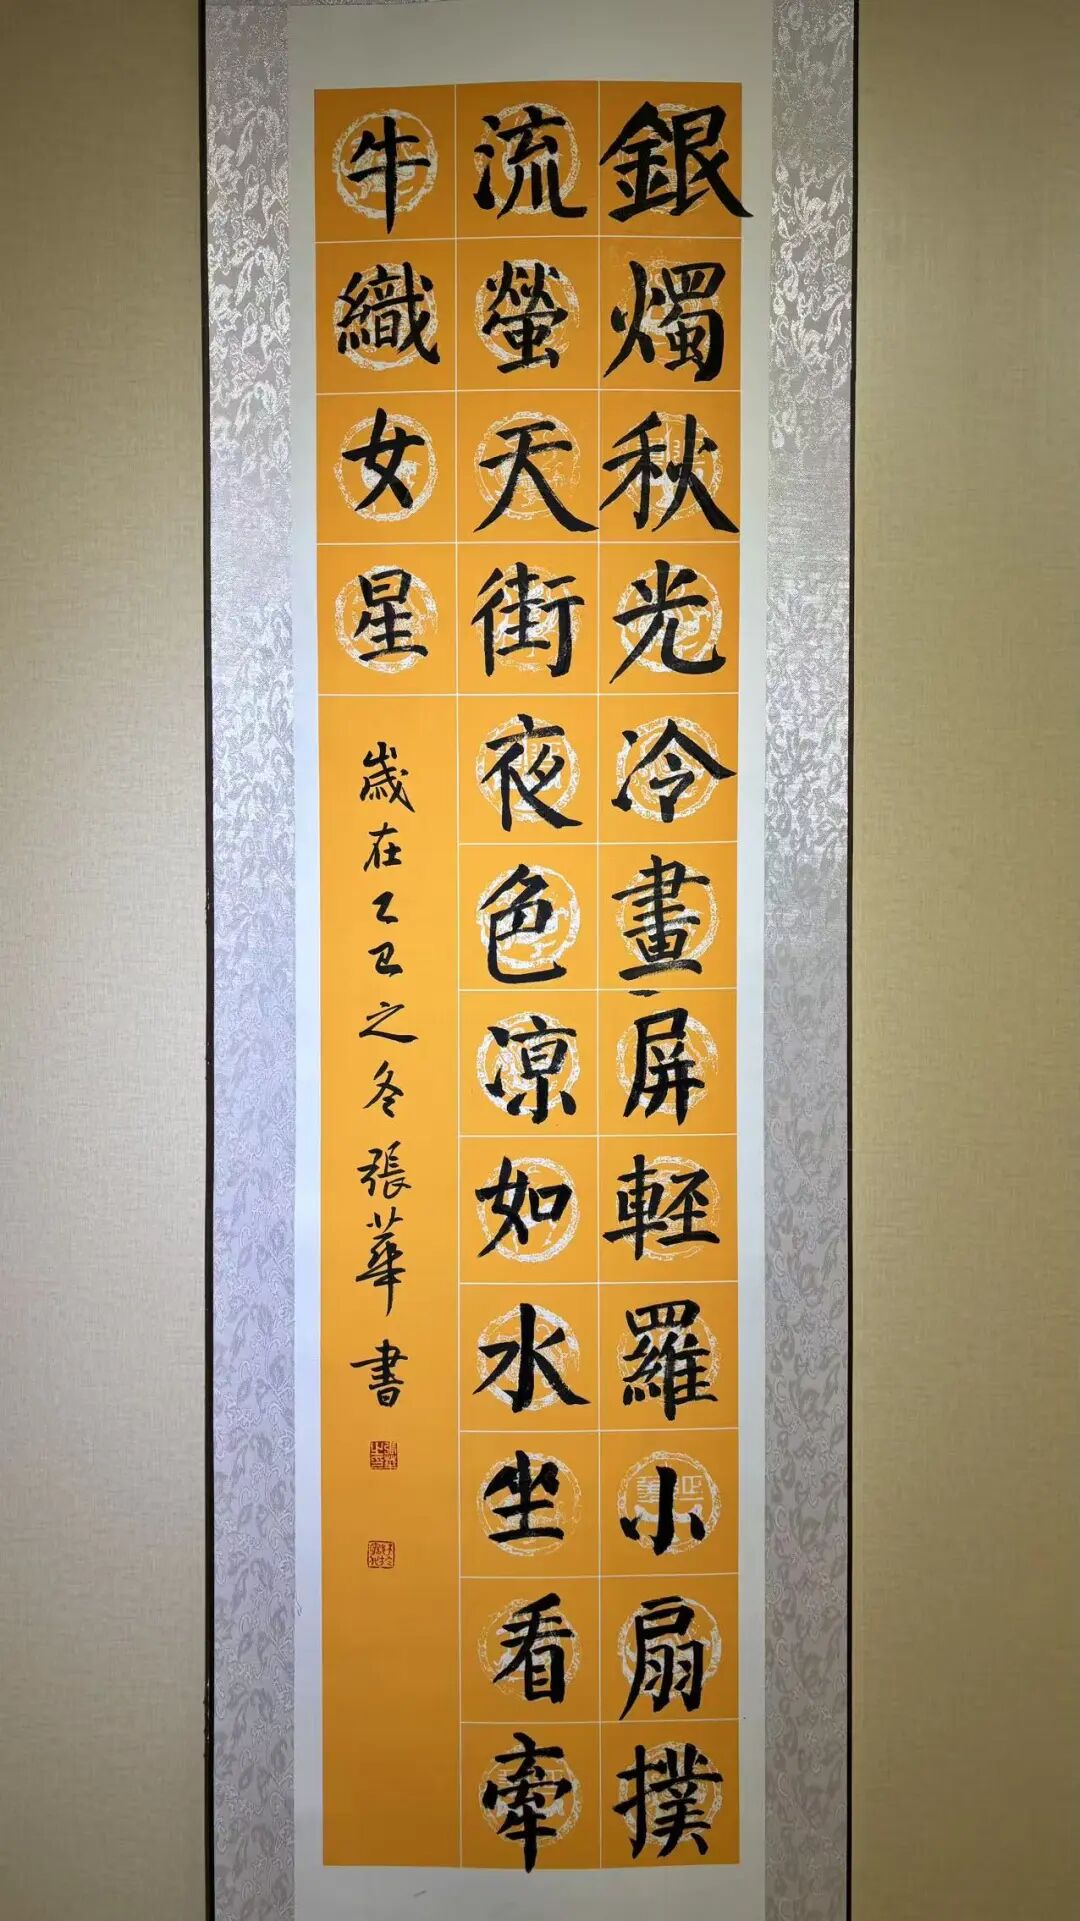 銀燭秋光冷畫屏軽羅小扇撲
流螢天街夜色凉如水坐看牽
牛織女星
歲在乙巳之冬張華書